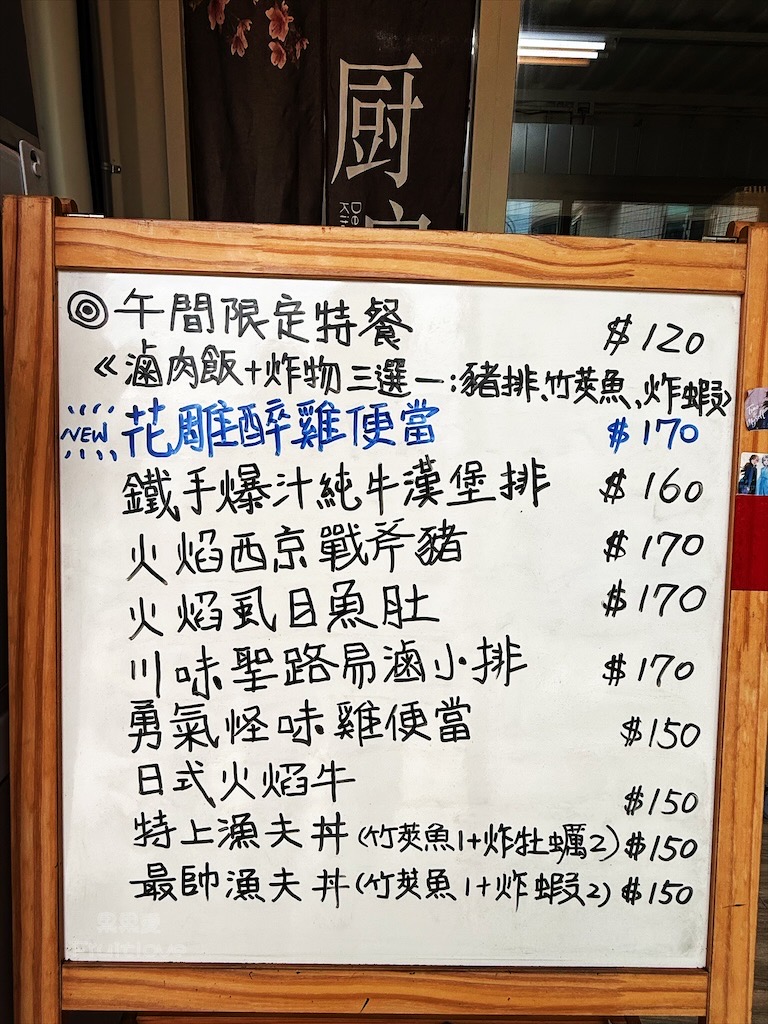 厨
De
Kit
◎午間限定特餐 $120
《滷肉飯+炸物三選一:豬排、竹莢魚、炸蝦》
NEW 花雕醉雞便當 $170
鐵手爆汁純牛漢堡排 $160
火焰西京戰斧豬 $170
火焰虱目魚肚 $170
川味聖路易滷小排 $170
勇氣怪味雞便當 $150
日式火焰牛 $150
特上漁夫丼(竹莢魚1+炸牡蠣2) $150
最帥漁夫丼(竹莢魚1+炸蝦2) $150